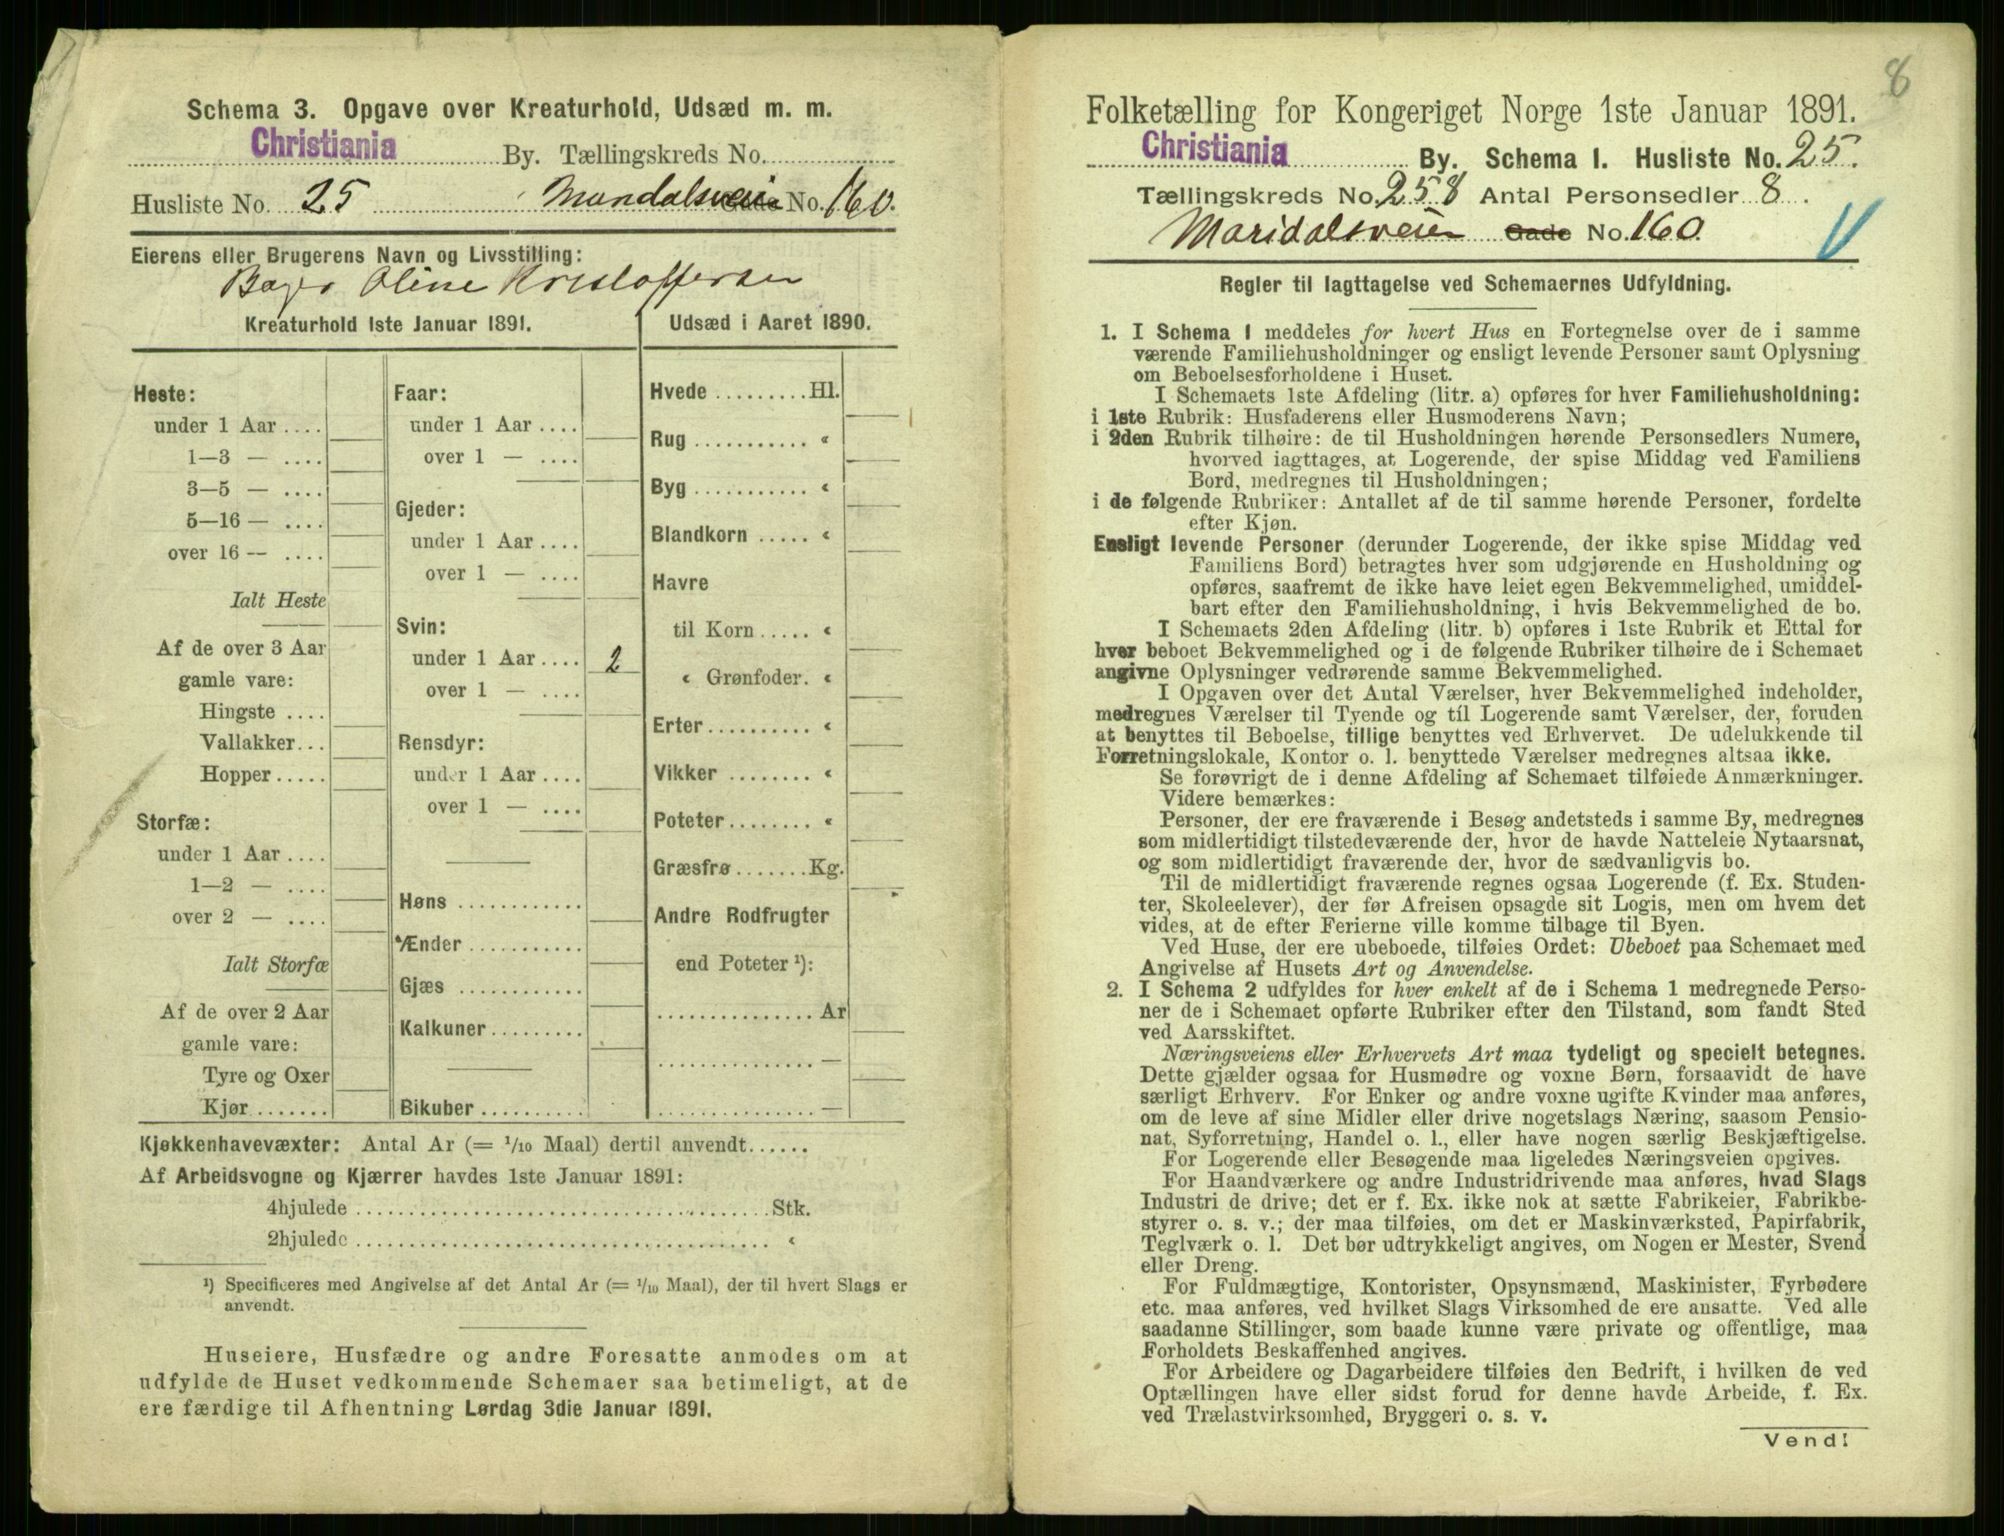 Schema 3. Opgave over Kreaturhold, Udsæd m. m.
Christiania By. Tællingskreds No.
Husliste No. 25 Maridalsveien Gade No. 160.
Eierens eller Brugerens Navn og Livsstilling:
Bager Oline Kristoffersen
Kreaturhold 1ste Januar 1891.
Heste:
under 1 Aar ....
1—3 — ....
3—5 — ....
5—16 — ....
over 16 — ....
Ialt Heste
Af de over 3 Aar
gamle vare:
Hingste ....
Vallakker...
Hopper.....
Storfæ:
under 1 Aar ....
1—2 — ....
over 2 — ....
Ialt Storfæ
Af de over 2 Aar
gamle vare:
Tyre og Oxer
Kjør.......
Faar:
under 1 Aar ....
over 1 — ....
Gjeder:
under 1 Aar ....
over 1 — ....
Svin:
under 1 Aar .... 2
over 1 — ....
Rensdyr:
under 1 Aar ....
over 1 — ....
Høns ............
Ænder ...........
Gjæs ............
Kalkuner.........
Bikuber ..........
Udsæd i Aaret 1890.
Hvede .........Hl.
Rug ........... «
Byg ........... «
Blandkorn ..... «
Havre
til Korn ..... «
« Grønfoder. «
Erter .......... «
Vikker ........ «
Poteter........ «
Græsfrø.......Kg.
Andre Rodfrugter
end Poteter ¹):
............... Ar
............... —
............... —
Kjøkkenhavevæxter: Antal Ar (= 1/10 Maal) dertil anvendt......
Af Arbeidsvogne og Kjærrer havdes 1ste Januar 1891:
4hjulede ....................................Stk.
2hjulede .................................... «
¹) Specificeres med Angivelse af det Antal Ar (= 1/10 Maal), der til hvert Slags er
anvendt.
Huseiere, Husfædre og andre Foresatte anmodes om at
udfylde de Huset vedkommende Schemaer saa betimeligt, at de
ere færdige til Afhentning Lørdag 3die Januar 1891.
8
Folketælling for Kongeriget Norge 1ste Januar 1891.
Christiania By. Schema 1. Husliste No. 25.
Tællingskreds No. 258 Antal Personsedler 8.
Maridalsveien Gade No. 160.
Regler til Iagttagelse ved Schemaernes Udfyldning.
1. I Schema 1 meddeles for hvert Hus en Fortegnelse over de i samme
værende Familiehusholdninger og ensligt levende Personer samt Oplysning
om Beboelsesforholdene i Huset.
I Schemaets 1ste Afdeling (litr. a) opføres for hver Familiehusholdning:
i 1ste Rubrik: Husfaderens eller Husmoderens Navn;
i 2den Rubrik tilhøire: de til Husholdningen hørende Personsedlers Numere,
hvorved iagttages, at Logerende, der spise Middag ved Familiens
Bord, medregnes til Husholdningen;
i de følgende Rubriker: Antallet af de til samme hørende Personer, fordelte
efter Kjøn.
Ensligt levende Personer (derunder Logerende, der ikke spise Middag ved
Familiens Bord) betragtes hver som udgjørende en Husholdning og
opføres, saafremt de ikke have leiet egen Bekvemmelighed, umiddel-
bart efter den Familiehusholdning, i hvis Bekvemmelighed de bo.
I Schemaets 2den Afdeling (litr. b) opføres i 1ste Rubrik et Ettal for
hver beboet Bekvemmelighed og i de følgende Rubriker tilhøire de i Schemaet
angivne Oplysninger vedrørende samme Bekvemmelighed.
I Opgaven over det Antal Værelser, hver Bekvemmelighed indeholder,
medregnes Værelser til Tyende og til Logerende samt Værelser, der, foruden
at benyttes til Beboelse, tillige benyttes ved Erhvervet. De udelukkende til
Forretningslokale, Kontor o. l. benyttede Værelser medregnes altsaa ikke.
Se forøvrigt de i denne Afdeling af Schemaet tilføiede Anmærkninger.
Videre bemærkes:
Personer, der ere fraværende i Besøg andetsteds i samme By, medregnes
som midlertidigt tilstedeværende der, hvor de havde Natteleie Nytaarsnat,
og som midlertidigt fraværende der, hvor de sædvanligvis bo.
Til de midlertidigt fraværende regnes ogsaa Logerende (f. Ex. Studen-
ter, Skoleelever), der før Afreisen opsagde sit Logis, men om hvem det
vides, at de efter Ferierne ville komme tilbage til Byen.
Ved Huse, der ere ubeboede, tilføies Ordet: Ubeboet paa Schemaet med
Angivelse af Husets Art og Anvendelse.
2. I Schema 2 udfyldes for hver enkelt af de i Schema 1 medregnede Perso-
ner de i Schemaet opførte Rubriker efter den Tilstand, som fandt Sted
ved Aarsskiftet.
Næringsveiens eller Erhvervets Art maa tydeligt og specielt betegnes.
Dette gjælder ogsaa for Husmødre og voxne Børn, forsaavidt de have
særligt Erhverv. For Enker og andre voxne ugifte Kvinder maa anføres,
om de leve af sine Midler eller drive nogetslags Næring, saasom Pensio-
nat, Syforretning, Handel o. l., eller have nogen særlig Beskjæftigelse.
For Logerende eller Besøgende maa ligeledes Næringsveien opgives.
For Haandværkere og andre Industridrivende maa anføres, hvad Slags
Industri de drive; det er f. Ex. ikke nok at sætte Fabrikeier, Fabrikbe-
styrer o. s. v.; der maa tilføies, om det er Maskinværksted, Papirfabrik,
Teglværk o. l. Det bør udtrykkeligt angives, om Nogen er Mester, Svend
eller Dreng.
For Fuldmægtige, Kontorister, Opsynsmænd, Maskinister, Fyrbødere
etc. maa anføres, ved hvilket Slags Virksomhed de ere ansatte. Ved alle
saadanne Stillinger, som baade kunne være private og offentlige, maa
Forholdets Beskaffenhed angives.
For Arbeidere og Dagarbeidere tilføies den Bedrift, i hvilken de ved
Optællingen have eller sidst forud for denne havde Arbeide, f. Ex.
ved Trælastvirksomhed, Bryggeri o. s. v.
Vend!